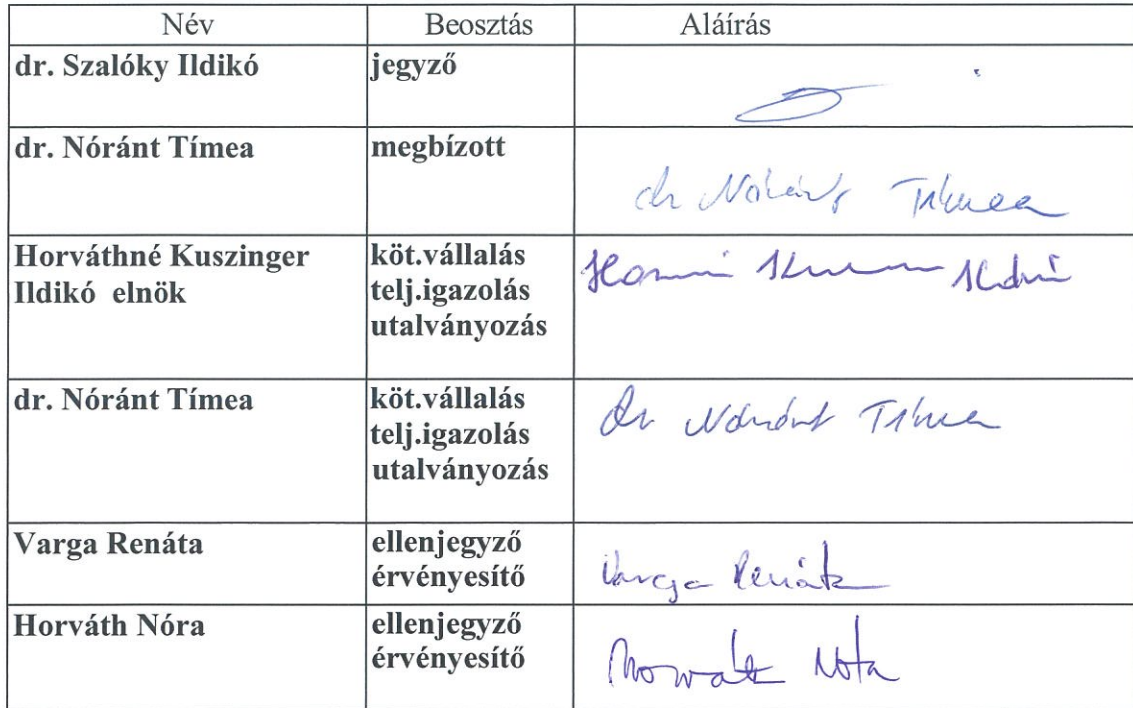 Név Beosztás Aláírás
dr. Szalóky Ildikó jegyző
dr. Nóránt Tímea megbízott
dr Nóránt Tímea
Horváthné Kuszinger köt.vállalás
Ildikó elnök telj.igazolás
utalványozás
dr. Nóránt Tímea köt.vállalás
telj.igazolás
utalványozás
dr Nóránt Tímea
Varga Renáta ellenjegyző
érvényesítő
Varga Renáta
Horváth Nóra ellenjegyző
érvényesítő
Horváth Nóra